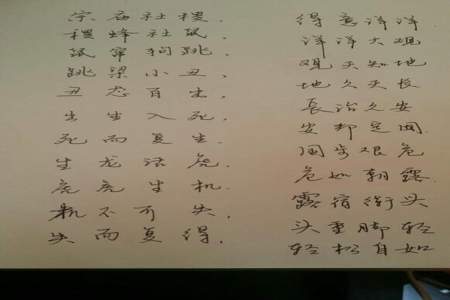 宗庙社稷,
稷蜂社鼠,
鼠窜狗跳,
跳梁小丑,
丑态百出,
出生入死,
死而复生,
生龙活虎,
虎虎生机,
机不可失,
失而复得,
得意洋洋
洋洋大观
观天知地
地久天长
长治久安
安邦定国
国步艰危
危如朝露
露宿街头
头重脚轻
轻松自如